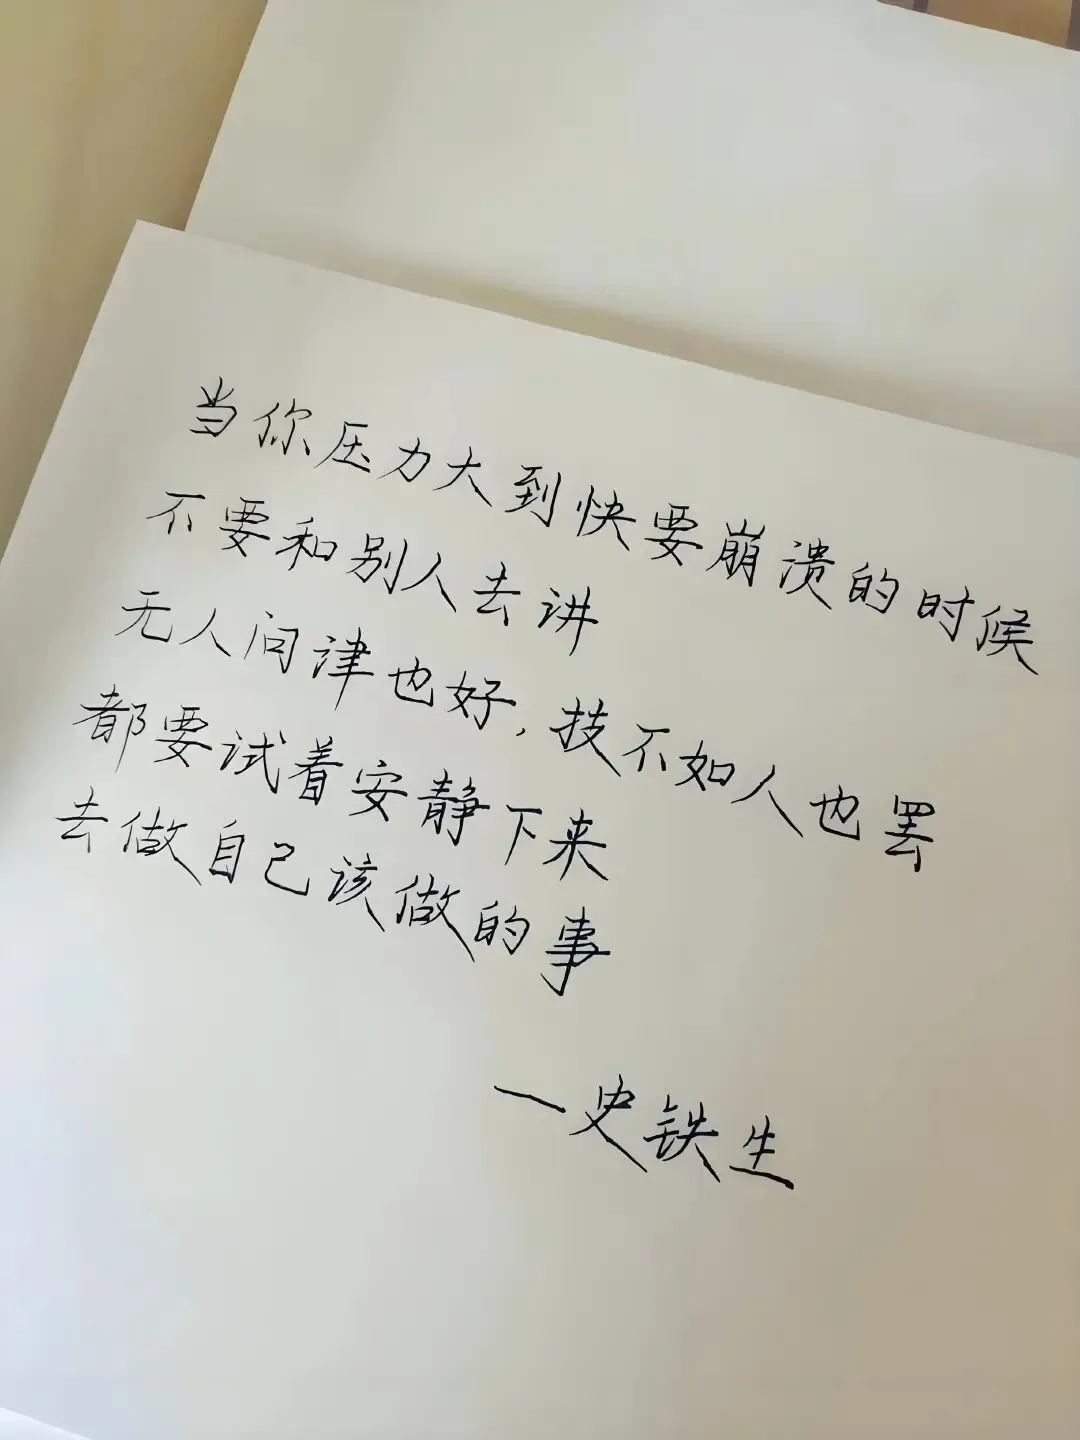 当你压力大到快要崩溃的时候
不要和别人去讲
无人问津也好,技不如人也罢
都要试着安静下来
去做自己该做的事
一史铁生